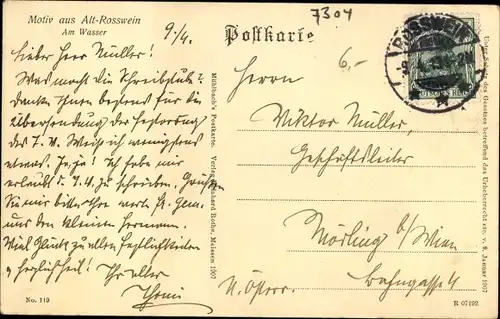 Motiv aus Alt-Rosswein
Am Wasser
9./4.
7304
Postkarte
6,-
ROSSWEIN
DEUTSCHES REICH
Lieber Herr Müller!
Was macht die Schreibstube?
Danke Ihnen bestens für die
Übersendung der
des T. V. Weiß ich wenigstens
etwas. Ja, ja! Ich habe mir
erlaubt d. J. V. zu schreiben. Grüßen
Sie mir bitte Ihre werte Fr. Gem.
und den kleinen Hermann.
Viel Glück zu allen Festlichkeiten
u. Herzlichkeit! Ihr alter
Herrn
Viktor Müller,
Geschäftsleiter
Mödling b/Wien
Bahngasse 4
N. Österr.
Mühlbach's Postkarte. Verlag Bernhard Rothe, Meissen 1907
Unter Schutz des Gesetzes betreffend das Urheberrecht etc. v. 9. Januar 1907
No. 119
R 07192